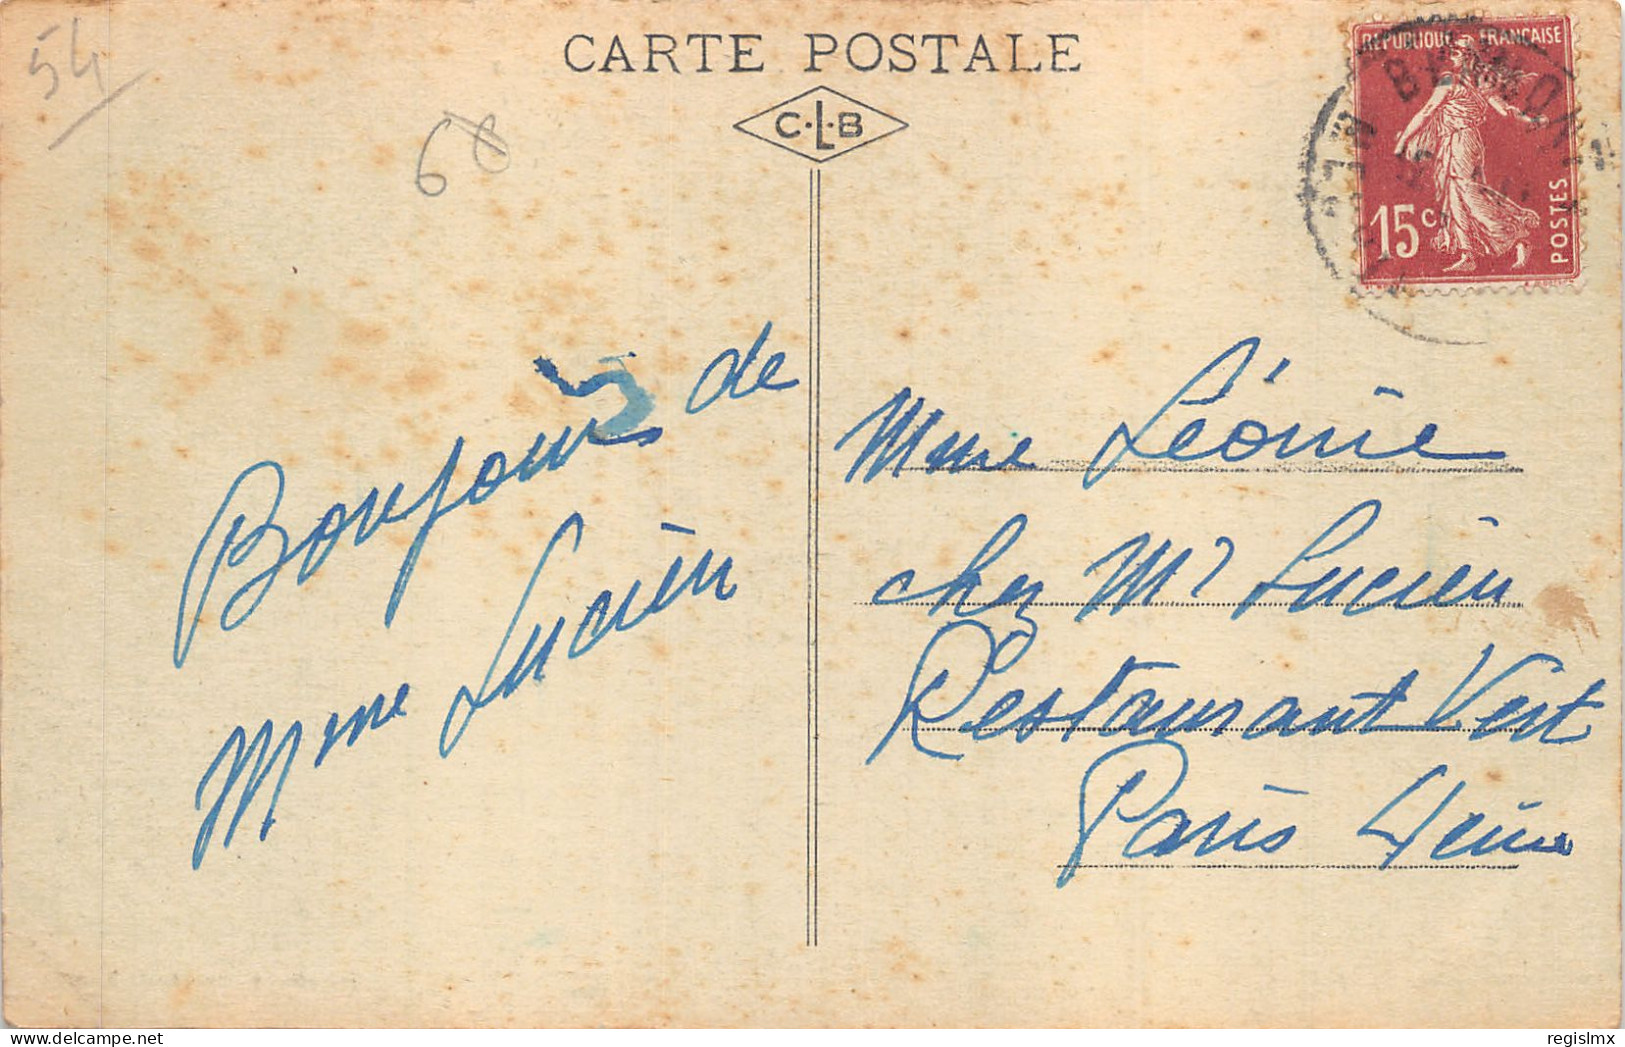 54
68
CARTE POSTALE
C·L·B
REPUBLIQUE FRANÇAISE
15c
POSTES
Bonjour de
Mme Lucien
Mme Léonie
chez Mr Lucien
Restaurant Vert
Paris 4eme
delcampe.net
regislmx